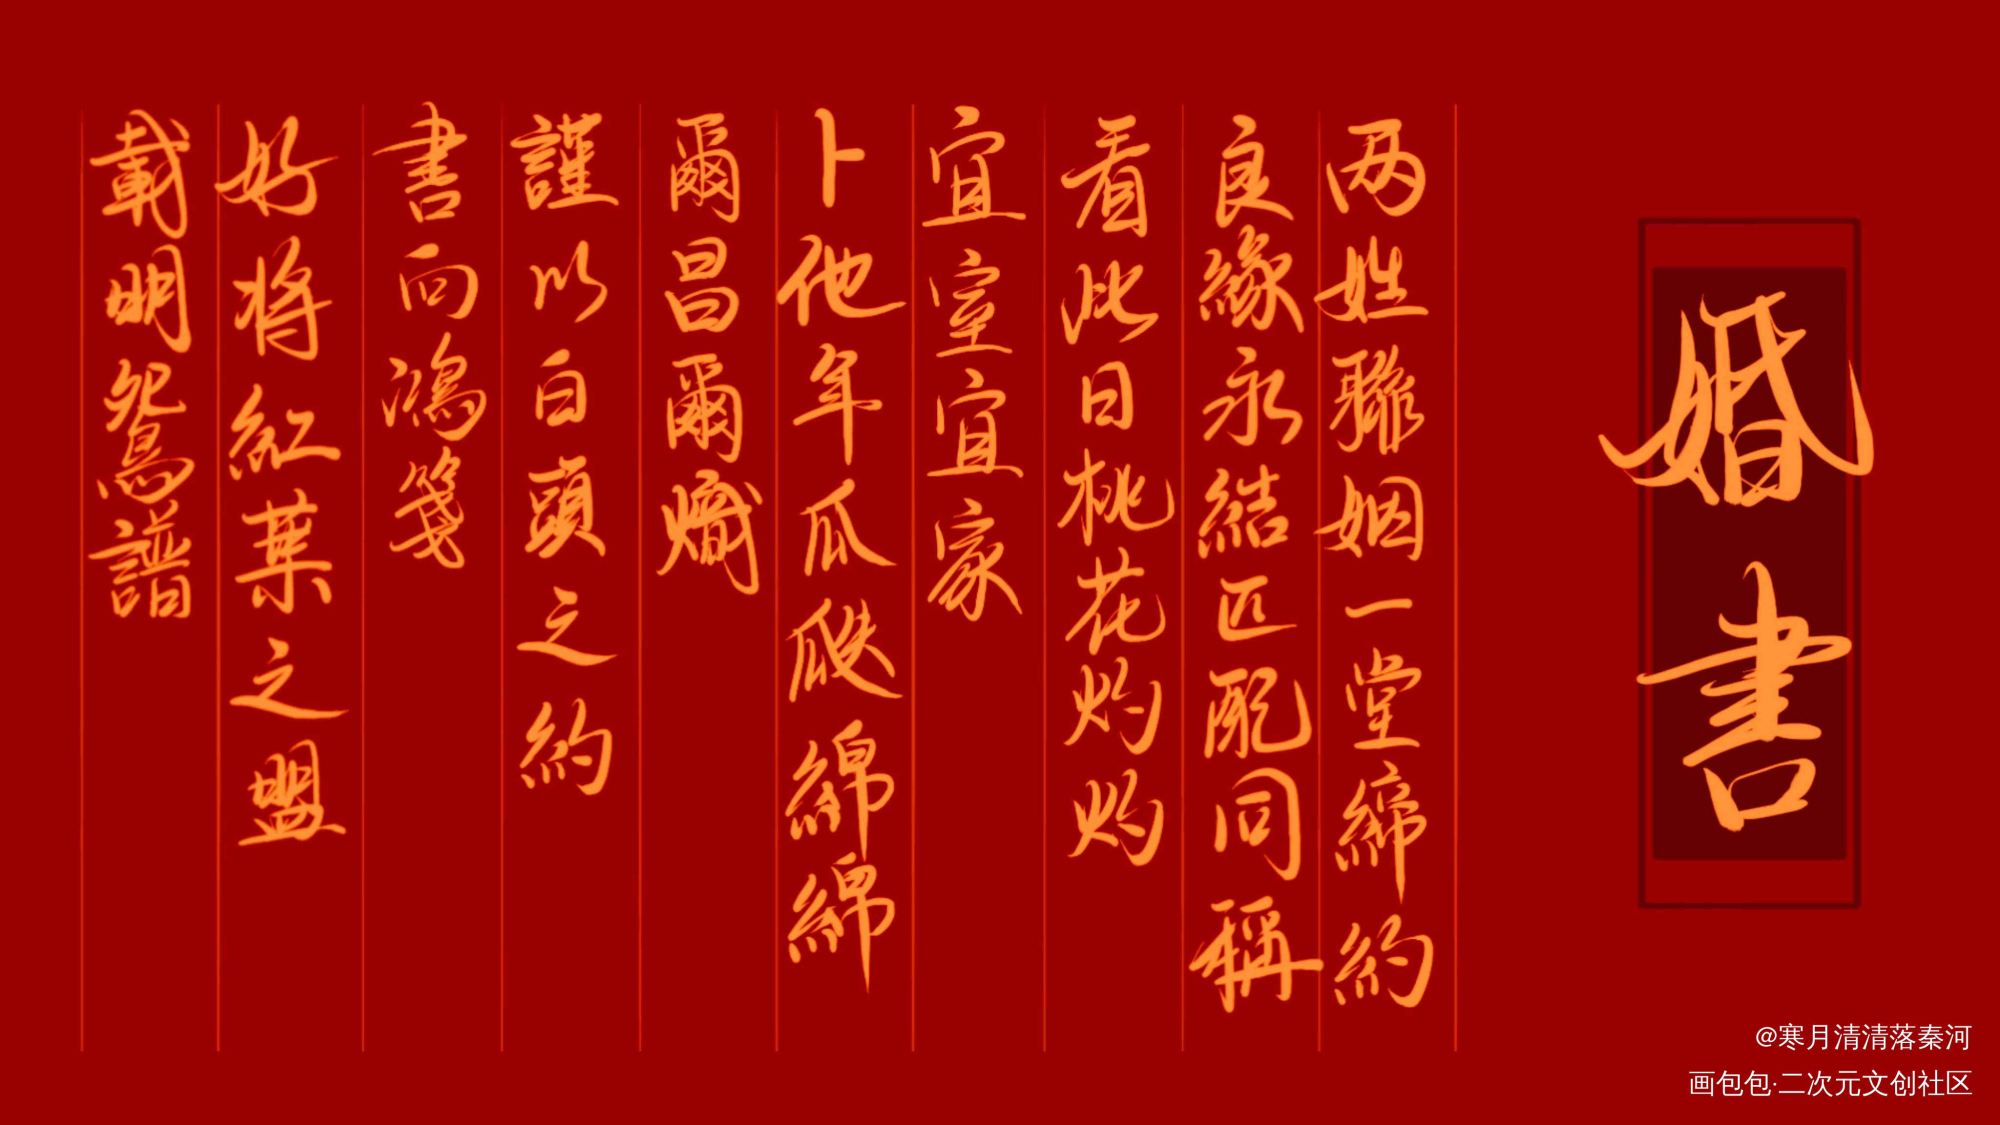 婚書
两姓聯姻一堂締約
良緣永結匹配同稱
看此日桃花灼灼
宜室宜家
卜他年瓜瓞綿綿
爾昌爾熾
謹以白頭之約
書向鴻箋
好将紅葉之盟
載明鴛譜
@寒月清清落秦河
画包包·二次元文创社区